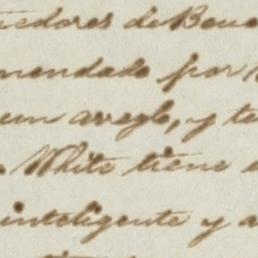 edores de Bue
mendado por
un arreglo, y te
White tiene
inteligente y a